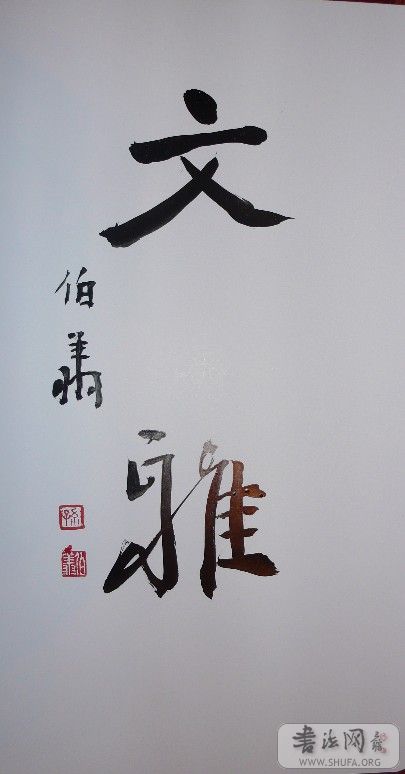 文雅
伯翔
書法网
WWW.SHUFA.ORG